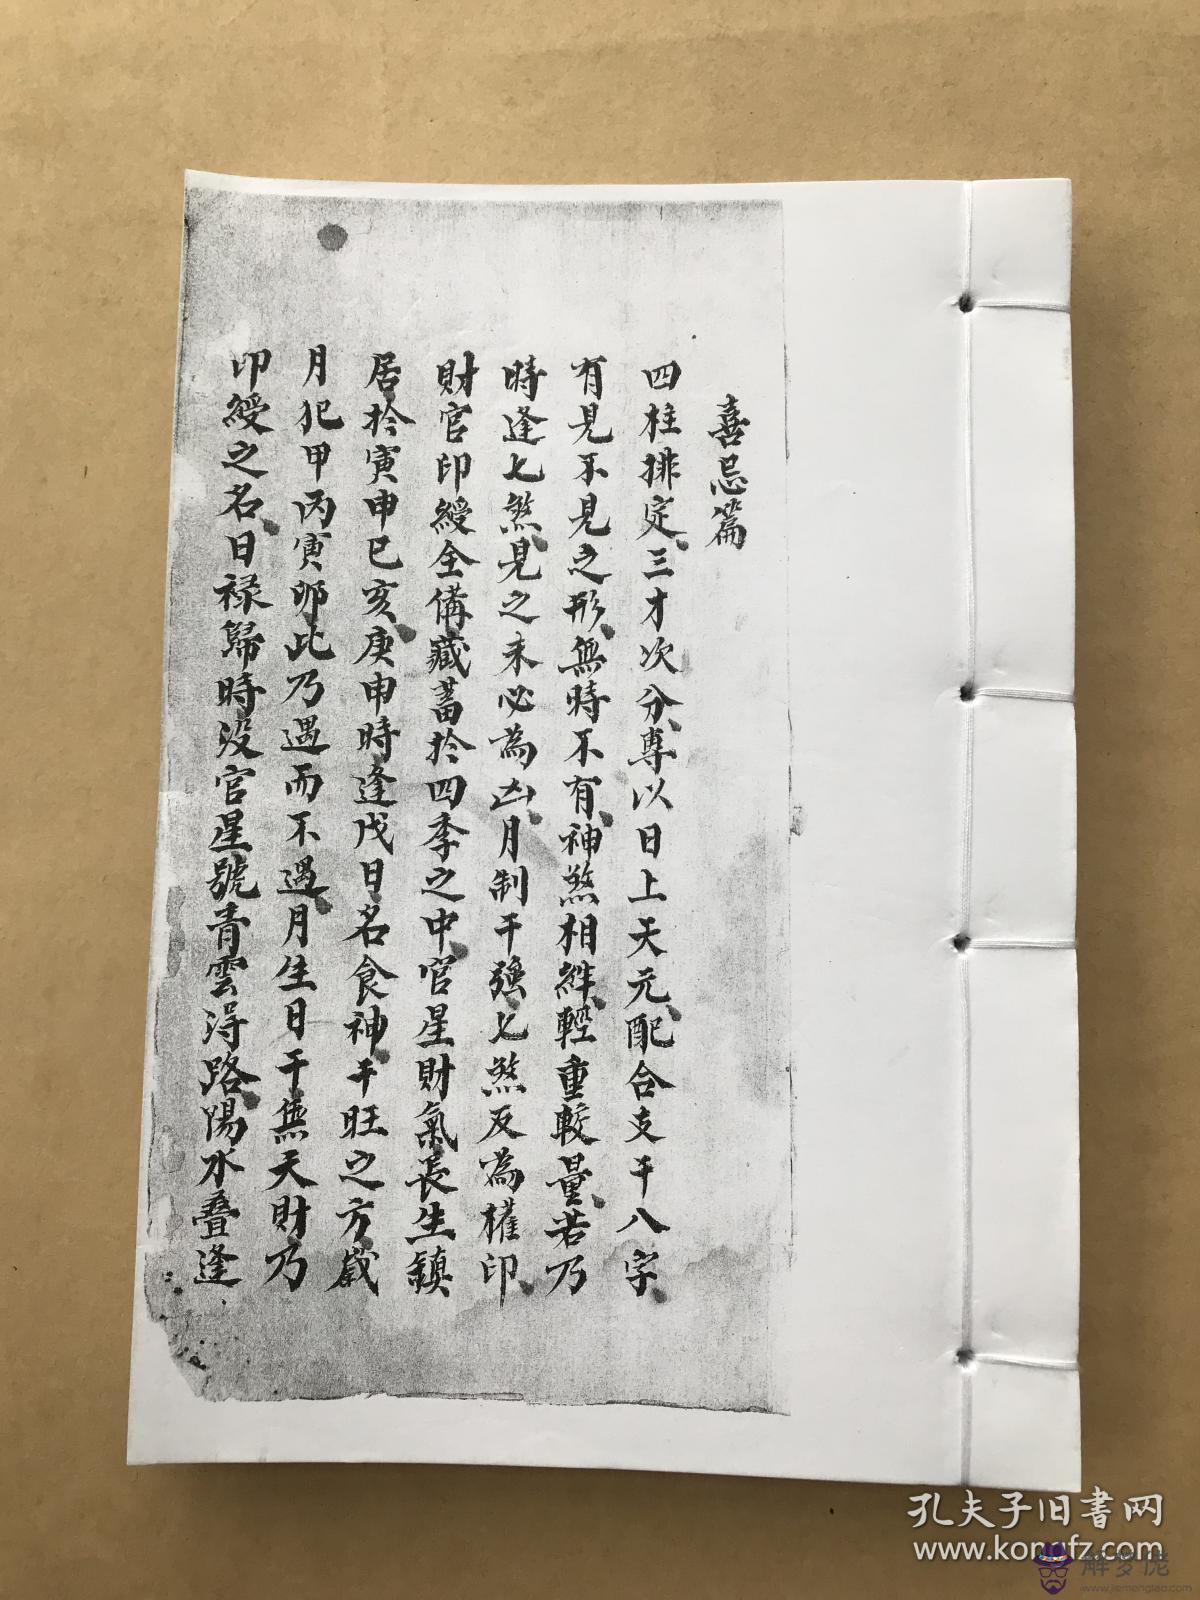 喜忌篇
四柱排定、三才次分、專以日上天元、配合支干八字、
有見不見之形、無時不有、神煞相絆、輕重較量、若乃
時逢七煞、見之未必為凶、月制干強七煞反為權印、
財官印綬全備藏蓄於四季之中、官星財氣長生鎮
居於寅申巳亥、庚申時逢戊日名食神干旺之方歲
月犯甲丙寅卯此乃遇而不遇、月生日干無天財乃
印綬之名、日祿歸時没官星號青雲得路、陽水疊逢
孔夫子旧書网
www.kongfz.com
解梦佬
www.jiemenglao.com